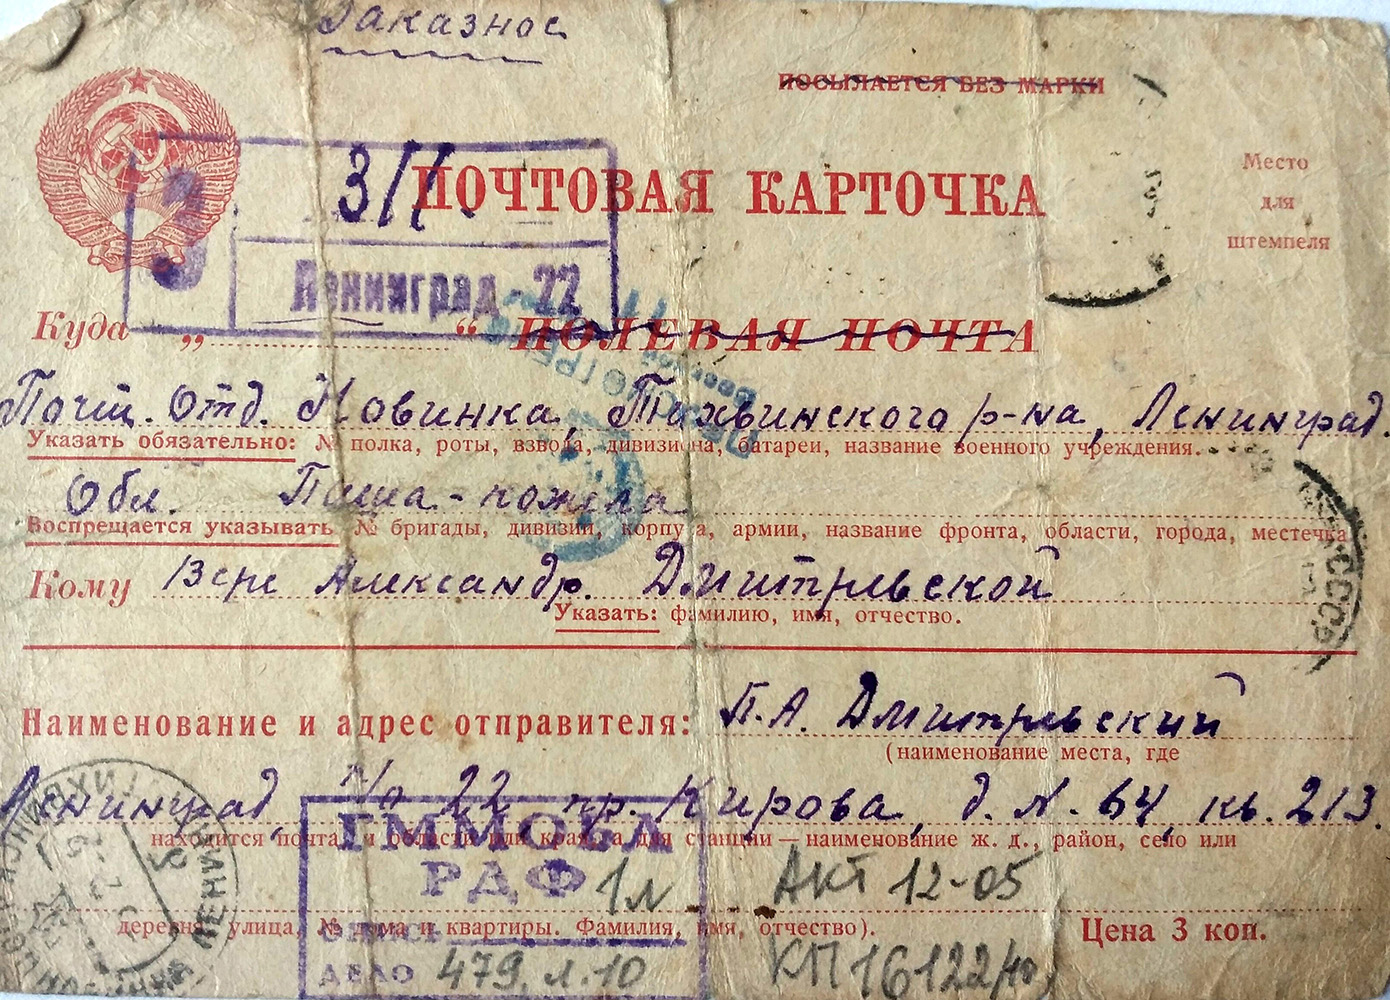 Заказное
ПОСЫЛАЕТСЯ БЕЗ МАРКИ
З 11.
ПОЧТОВАЯ КАРТОЧКА
Место
для
штемпеля
Ленинград - 22
Куда „ “ ПОЛЕВАЯ ПОЧТА
Почт. Отд. Новинка, Тихвинского р-на, Ленинград.
Указать обязательно: № полка, роты, взвода, дивизиона, батареи, название военного учреждения.
Обл. Паша-кожела
Воспрещается указывать № бригады, дивизии, корпуса, армии, название фронта, области, города, местечка
Кому Вере Александр. Дмитревской
Указать: фамилию, имя, отчество.
Наименование и адрес отправителя: П.А. Дмитревский
(наименование места, где
Ленинград, 22 пр. Кирова, д. N. 64, кв. 213.
находится почта, и области или края, а для станции — наименование ж. д., район, село или
ГММОБЛ
РДФ 1л АКТ 12-05
деревня, улица, № дома и квартиры. Фамилия, имя, отчество).
Цена 3 коп.
ДЕЛО 479, л. 10 КП 16122/40